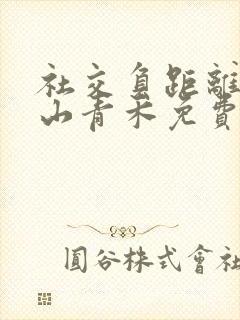 社交負距離
山青木免費
圓谷株式會社